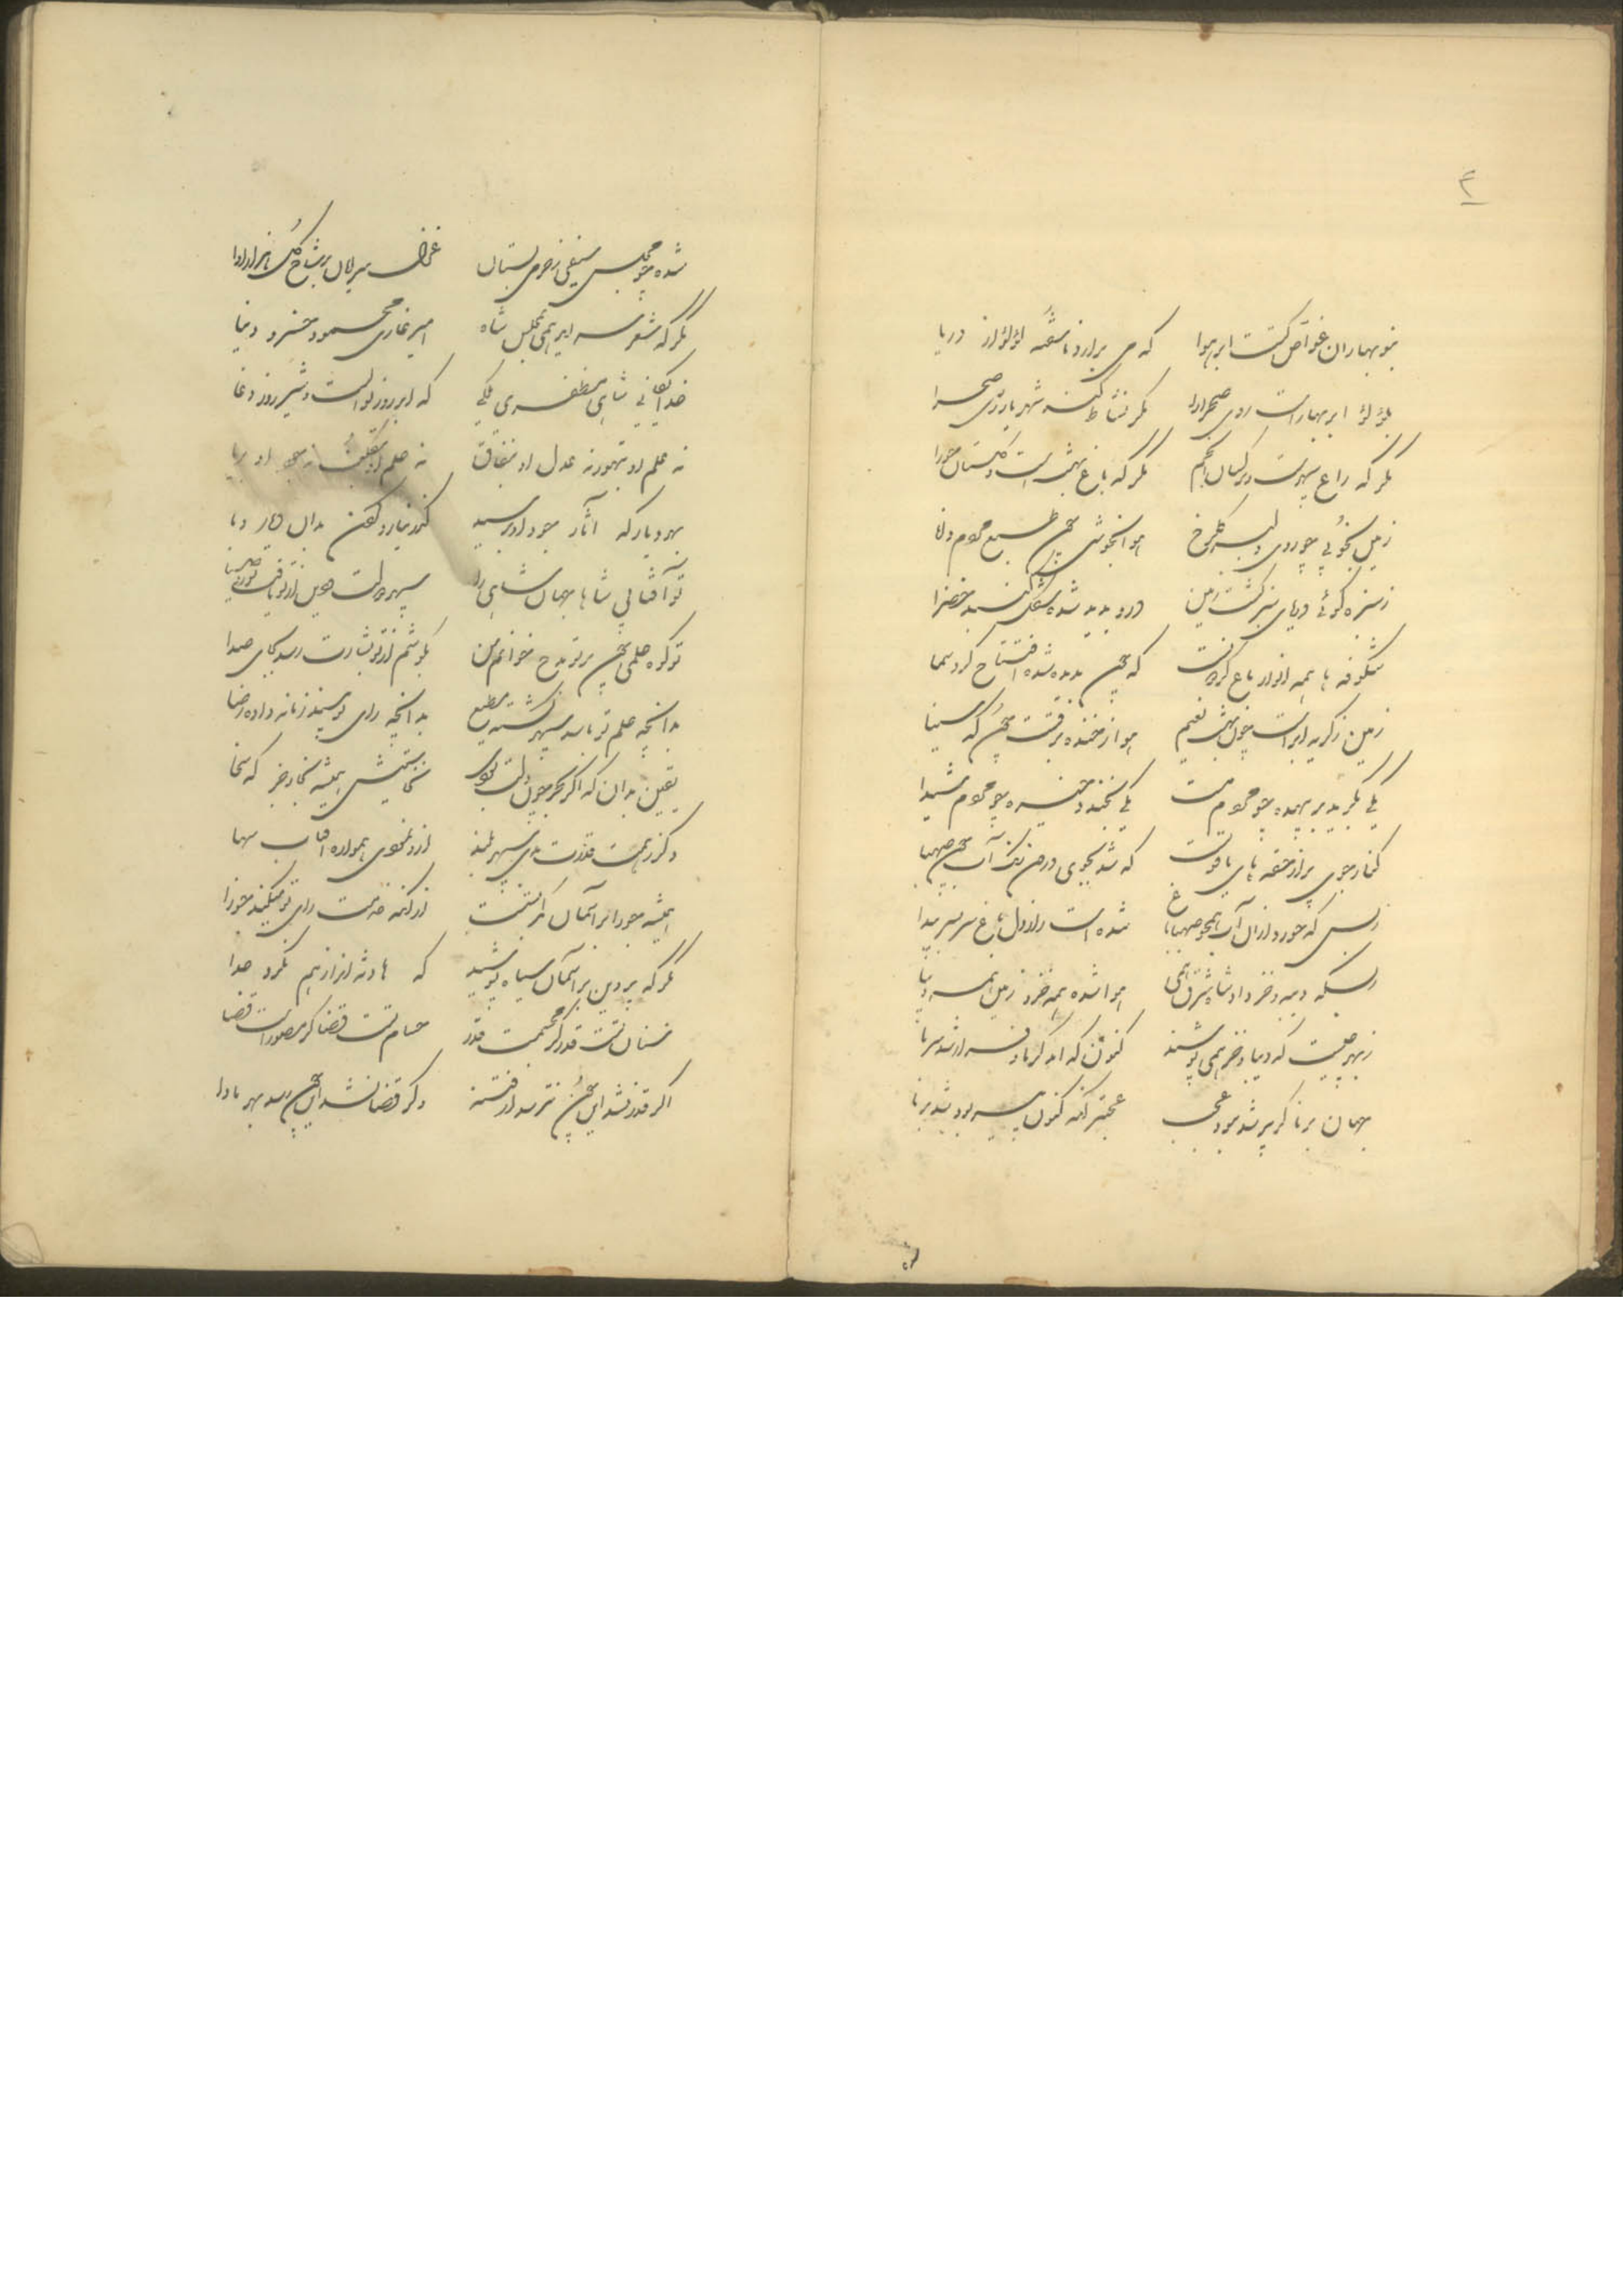 ۲
بنوبهاران غواص گشت ابر هوا که می برآرد ناسفته لؤلؤ از دریا
بلؤلؤ ابر بهاراست روی صحرا را مگر نشاط کند شهریار زی صحرا
مگر که راغ سپهرست و نرگسان انجم مگر که باغ بهشت است و گلستان حورا
زمین بخوبی چو روی دلبر گلرخ هوا بخوشی چون طبع مردم دانا
ز سبزه گوئی دریای سبز گشت زمین درو پدید شده شکل گنبد خضرا
شگوفه ها همه انوار باغ گردونست که چون پدید شده افتتاح کرد سما
زمین ز گریه ابر است چون بهشت نعیم هوا ز خنده برقست چون که سینا
یکی بگرید بر بیهده چو مردم مست یکی بخندد خیره چو مردم شیدا
کنار جوی پر از حقه های یاقوتست که شد بجوی درون رنگ آب چون صهبا
ز بس که خورد از آن آب همچو صهبا باغ شده است راز دل باغ سربسر پیدا
ز بسکه دیبه و خز داد شاه شرق همی هوا شده همه خز و زمین همه دیبا
ز بهر چیست که دیبا و خز همی پوشند کنون که آمد گرما و شد سرما
جهان برنا گر پیر شد نبود عجب عجبتر آنکه کنون پیر بود شد برنا
شده چو مجلس مستنقی ز خرمی بستان غزل سرایان بر شاخ گل هزار آوا
مگر که شعر سراید همی بمجلس شاه امیر غازی محمود خسرو دنیا
خدایگانی شاهی مظفری ملکی که ابر روز نوالست و شیر روز وغا
نه علم او بتهور نه عدل او بنفاق نه حلم او بتکلف نه جود او بریا
بهر دیار که آثار جود او برسید گذر نیارد کردن بدان دیار وبا
تو آفتابی شاها جهان شاهی را سپهر دولت و دین از تو یافت نور و ضیا
تو کوه حلمی چون بر تو مدح خوانم من بگوشم از تو بشارت رسد بجای صدا
بدانچه علم تو باشد سپهر گشته مطیع بدانچه رای تو بیند زمانه داده رضا
یقین بدان که اگر بحر چون دلت بودی بخاستیش همیشه بجای خیز سخا
وگر ز همت و قدرت بدی سپهر بلند ازو نمودی همواره آفتاب سها
همیشه جوزا بر آسمان کمر بستست از آنکه خدمت رای تو میکند جوزا
مگر که پروین بر آسمان سپاه تو شد که هادثه از آن هم نگردد جدا
سنان تست قدر گر مجسمست قدر حسام تست قضا گر مصوراست قضا
اگر قدر نشد این چون نترسد از فتنه وگر قضا نشد این چون رسد بهر مأوا